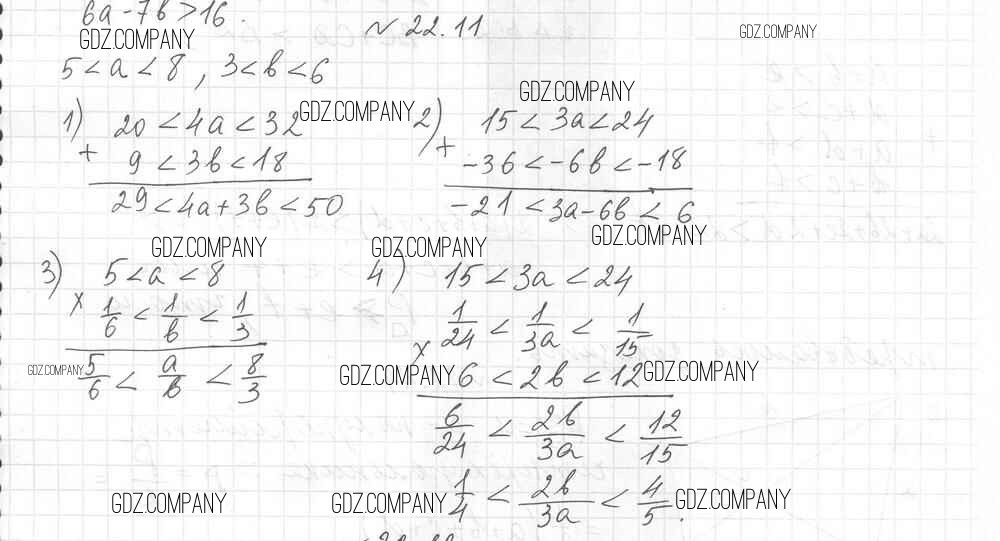 6a - 7b > 16.
№ 22.11
GDZ.COMPANY
GDZ.COMPANY
5 < a < 8 , 3 < b < 6
GDZ.COMPANY
1) 20 < 4a < 32
GDZ.COMPANY
+ 9 < 3b < 18
29 < 4a + 3b < 50
2) 15 < 3a < 24
+ -36 < -6b < -18
-21 < 3a - 6b < 6
GDZ.COMPANY
GDZ.COMPANY
GDZ.COMPANY
3) 5 < a < 8
× 1/6 < 1/b < 1/3
GDZ.COMPANY
5/6 < a/b < 8/3
4) 15 < 3a < 24
1/24 < 1/3a < 1/15
×
GDZ.COMPANY
6 < 2b < 12
GDZ.COMPANY
6/24 < 2b/3a < 12/15
GDZ.COMPANY
GDZ.COMPANY
1/4 < 2b/3a < 4/5.
GDZ.COMPANY